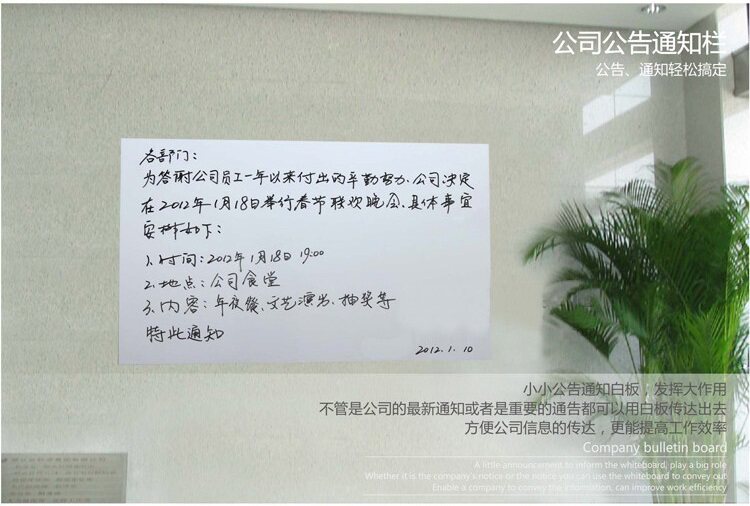 公司公告通知栏
公告、通知轻松搞定
各部门：
为答谢公司员工一年以来付出的辛勤努力、公司决定
在2012年1月18日举行春节联欢晚会、具体事宜
安排如下：
1、时间：2012年1月18日 19:00
2、地点：公司食堂
3、内容：年夜餐、文艺演出、抽奖等
特此通知
2012.1.10
小小公告通知白板，发挥大作用
不管是公司的最新通知或者是重要的通告都可以用白板传达出去
方便公司信息的传达，更能提高工作效率
Company bulletin board
A little announcement to inform the whiteboard, play a big role
Whether it is the company's notice or the notice you can use the whiteboard to convey out
Enable a company to convey the information, can improve work efficiency